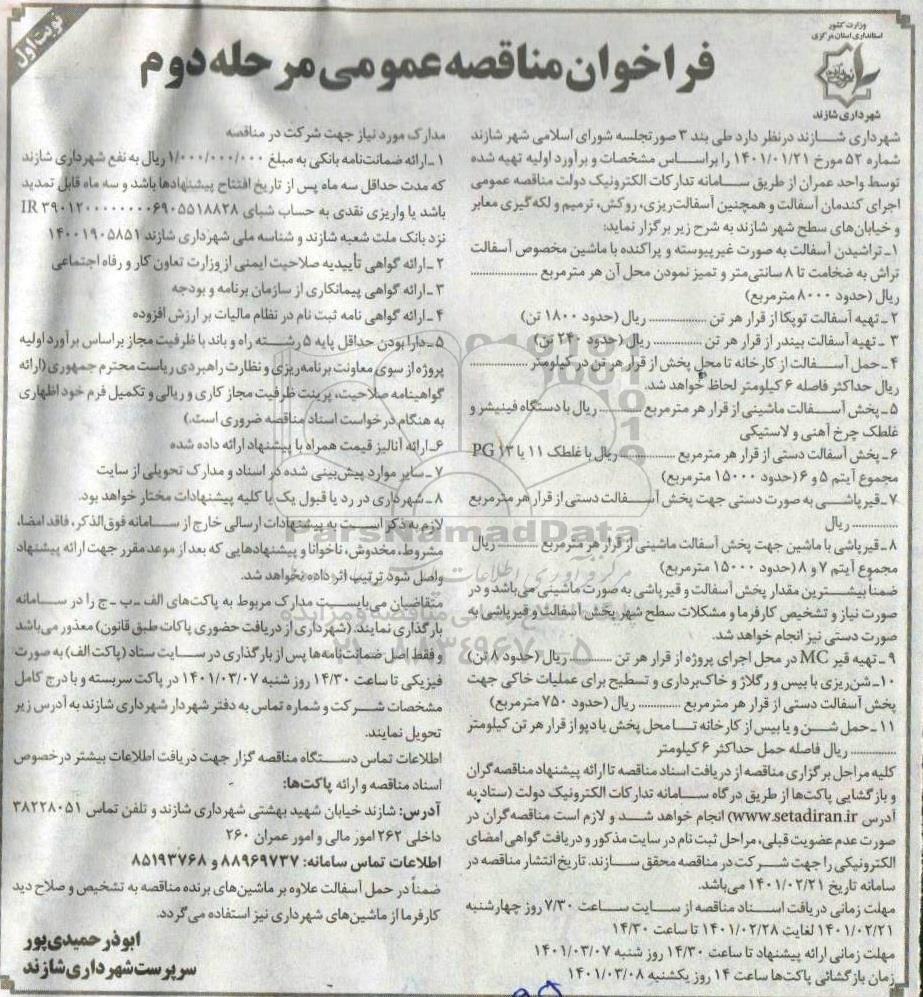 نوبت اول
وزارت کشور
استانداری استان مرکزی
شهرداری شازند
فراخوان مناقصه عمومی مرحله دوم
شهرداری شازند درنظر دارد طی بند ۳ صورتجلسه شورای اسلامی شهر شازند
شماره ۵۲ مورخ ۱۴۰۱/۰۱/۲۱ را براساس مشخصات و برآورد اولیه تهیه شده
توسط واحد عمران از طریق سامانه تدارکات الکترونیک دولت مناقصه عمومی
اجرای کندمان آسفالت و همچنین آسفالت‌ریزی، روکش، ترمیم و لکه‌گیری معابر
و خیابان‌های سطح شهر شازند به شرح زیر برگزار نماید:
۱ـ تراشیدن آسفالت به صورت غیرپیوسته و پراکنده با ماشین مخصوص آسفالت
تراش به ضخامت تا ۸ سانتی‌متر و تمیز نمودن محل آن هر مترمربع ..................
ریال (حدود ۸۰۰۰ مترمربع)
۲ـ تهیه آسفالت توپکا از قرار هر تن .................. ریال (حدود ۱۸۰۰ تن)
۳ ـ تهیه آسفالت بیندر از قرار هر تن ............... ریال (حدود ۲۴۰ تن)
۴ ـ حمل آسفالت از کارخانه تا محل پخش از قرار هر تن در کیلومتر ..............
ریال حداکثر فاصله ۶ کیلومتر لحاظ خواهد شد.
۵ ـ پخش آسفالت ماشینی از قرار هر مترمربع ............ ریال با دستگاه فینیشر و
غلطک چرخ آهنی و لاستیکی
۶ ـ پخش آسفالت دستی از قرار هر مترمربع .............. ریال با غلطک ۱۱ یا ۱۳ PG
مجموع آیتم ۵ و ۶ (حدود ۱۵۰۰۰ مترمربع)
۷ ـ قیرپاشی به صورت دستی جهت پخش آسفالت دستی از قرار هر مترمربع
.............. ریال
۸ ـ قیرپاشی با ماشین جهت پخش آسفالت ماشینی از قرار هر مترمربع .......... ریال
مجموع آیتم ۷ و ۸ (حدود ۱۵۰۰۰ مترمربع)
ضمنا بیشترین مقدار پخش آسفالت و قیرپاشی به صورت ماشینی می‌باشد و در
صورت نیاز و تشخیص کارفرما و مشکلات سطح شهر پخش آسفالت و قیرپاشی به
صورت دستی نیز انجام خواهد شد.
۹ ـ تهیه قیر MC در محل اجرای پروژه از قرار هر تن ............ ریال (حدود ۸ تن)
۱۰ـ شن‌ریزی با بیس و رگلاژ و خاک‌برداری و تسطیح برای عملیات خاکی جهت
پخش آسفالت دستی از قرار هر مترمربع ............. ریال (حدود ۷۵۰ مترمربع)
۱۱ ـ حمل شن و یا بیس از کارخانه تا محل پخش یا دپو از قرار هر تن کیلومتر
.............. ریال فاصله حمل حداکثر ۶ کیلومتر
کلیه مراحل برگزاری مناقصه از دریافت اسناد مناقصه تا ارائه پیشنهاد مناقصه‌گران
و بازگشایی پاکت‌ها از طریق درگاه سامانه تدارکات الکترونیک دولت (ستاد به
آدرس www.setadiran.ir) انجام خواهد شد و لازم است مناقصه‌گران در
صورت عدم عضویت قبلی، مراحل ثبت نام در سایت مذکور و دریافت گواهی امضای
الکترونیکی را جهت شرکت در مناقصه محقق سازند. تاریخ انتشار مناقصه در
سامانه تاریخ ۱۴۰۱/۰۲/۲۱ می‌باشد.
مهلت زمانی دریافت اسناد مناقصه از سایت ساعت ۷/۳۰ روز چهارشنبه
۱۴۰۱/۰۲/۲۱ لغایت ۱۴۰۱/۰۲/۲۸ تا ساعت ۱۴/۳۰
مهلت زمانی ارائه پیشنهاد تا ساعت ۱۴/۳۰ روز شنبه ۱۴۰۱/۰۳/۰۷
زمان بازگشائی پاکت‌ها ساعت ۱۴ روز یکشنبه ۱۴۰۱/۰۳/۰۸
مدارک مورد نیاز جهت شرکت در مناقصه
۱ـ ارائه ضمانت‌نامه بانکی به مبلغ ۱/۰۰۰/۰۰۰/۰۰۰ ریال به نفع شهرداری شازند
که مدت حداقل سه ماه پس از تاریخ افتتاح پیشنهادها باشد و سه ماه قابل تمدید
باشد یا واریزی نقدی به حساب شبای IR ۳۹۰۱۲۰۰۰۰۰۰۰۰۰۶۹۰۵۵۱۸۸۲۸
نزد بانک ملت شعبه شازند و شناسه ملی شهرداری شازند ۱۴۰۰۱۹۰۵۸۵۱
۲ ـ ارائه گواهی تأییدیه صلاحیت ایمنی از وزارت تعاون کار و رفاه اجتماعی
۳ ـ ارائه گواهی پیمانکاری از سازمان برنامه و بودجه
۴ ـ ارائه گواهی نامه ثبت نام در نظام مالیات بر ارزش افزوده
۵ ـ دارا بودن حداقل پایه ۵ رشته راه و باند با ظرفیت مجاز براساس برآورد اولیه
پروژه از سوی معاونت برنامه‌ریزی و نظارت راهبردی ریاست محترم جمهوری (ارائه
گواهینامه صلاحیت، پرینت ظرفیت مجاز کاری و ریالی و تکمیل فرم خود اظهاری
به هنگام درخواست اسناد مناقصه ضروری است.)
۶ـ ارائه آنالیز قیمت همراه با پیشنهاد ارائه داده شده
۷ ـ سایر موارد پیش‌بینی شده در اسناد و مدارک تحویلی از سایت
۸ ـ شهرداری در رد یا قبول یک یا کلیه پیشنهادات مختار خواهد بود.
لازم به ذکر است به پیشنهادات ارسالی خارج از سامانه فوق‌الذکر، فاقد امضا،
مشروط، مخدوش، ناخوانا و پیشنهادهایی که بعد از موعد مقرر جهت ارائه پیشنهاد
واصل شود ترتیب اثر داده نخواهد شد.
متقاضیان می‌بایست مدارک مربوط به پاکت‌های الف ـ ب ـ ج را در سامانه
بارگذاری نمایند. (شهرداری از دریافت حضوری پاکات طبق قانون) معذور می‌باشد
و فقط اصل ضمانت‌نامه‌ها پس از بارگذاری در سایت ستاد (پاکت الف) به صورت
فیزیکی تا ساعت ۱۴/۳۰ روز شنبه ۱۴۰۱/۰۳/۰۷ در پاکت سربسته و با درج کامل
مشخصات شرکت و شماره تماس به دفتر شهردار شهرداری شازند به آدرس زیر
تحویل نمایند.
اطلاعات تماس دستگاه مناقصه گزار جهت دریافت اطلاعات بیشتر درخصوص
اسناد مناقصه و ارائه پاکت‌ها:
آدرس: شازند خیابان شهید بهشتی شهرداری شازند و تلفن تماس ۳۸۲۲۸۰۵۱
داخلی ۲۶۲ امور مالی و امور عمران ۲۶۰
اطلاعات تماس سامانه: ۸۸۹۶۹۷۳۷ و ۸۵۱۹۳۷۶۸
ضمناً در حمل آسفالت علاوه بر ماشین‌های برنده مناقصه به تشخیص و صلاح دید
کارفرما از ماشین‌های شهرداری نیز استفاده می‌گردد.
ابوذر حمیدی‌پور
سرپرست شهرداری شازند
ParsNamadData